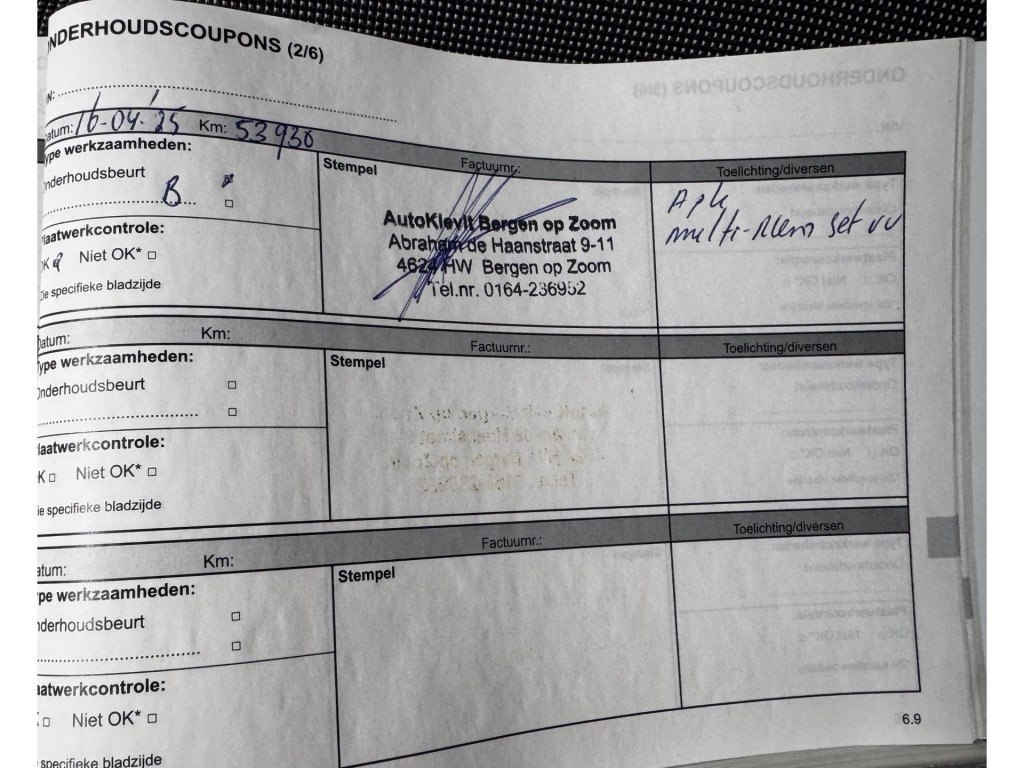 NDERHOUDSCOUPONS (2/6)
N:
atum: 16-04-'25 Km: 53930
ype werkzaamheden:
Stempel
Factuurnr.:
Toelichting/diversen
nderhoudsbeurt
B
Apk
multi-riem set vv
AutoKlevit Bergen op Zoom
Abraham de Haanstraat 9-11
4624 HW Bergen op Zoom
Tel.nr. 0164-236952
laatwerkcontrole:
K Niet OK*
ie specifieke bladzijde
atum: Km:
Factuurnr.:
Toelichting/diversen
ype werkzaamheden:
Stempel
nderhoudsbeurt
laatwerkcontrole:
K Niet OK*
ie specifieke bladzijde
atum: Km:
Factuurnr.:
Toelichting/diversen
pe werkzaamheden:
Stempel
nderhoudsbeurt
aatwerkcontrole:
Niet OK*
specifieke bladzijde
6.9